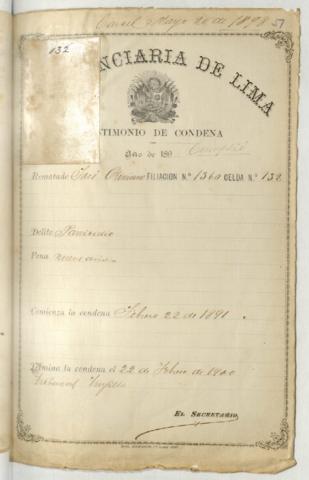 Mayo 20 de 1898 57
132
NCIARIA DE LIMA
TIMONIO DE CONDENA
Año de 189 Cumplió
Rematado José FILIACION N.º 1360 CELDA N.º 132
Delito Parricidio
Pena nueve años
Comienza la condena Febrero 22 de 1891.
Termina la condena el 22 de Febrero de 1900
Tribunal Trujillo
EL SECRETARIO,